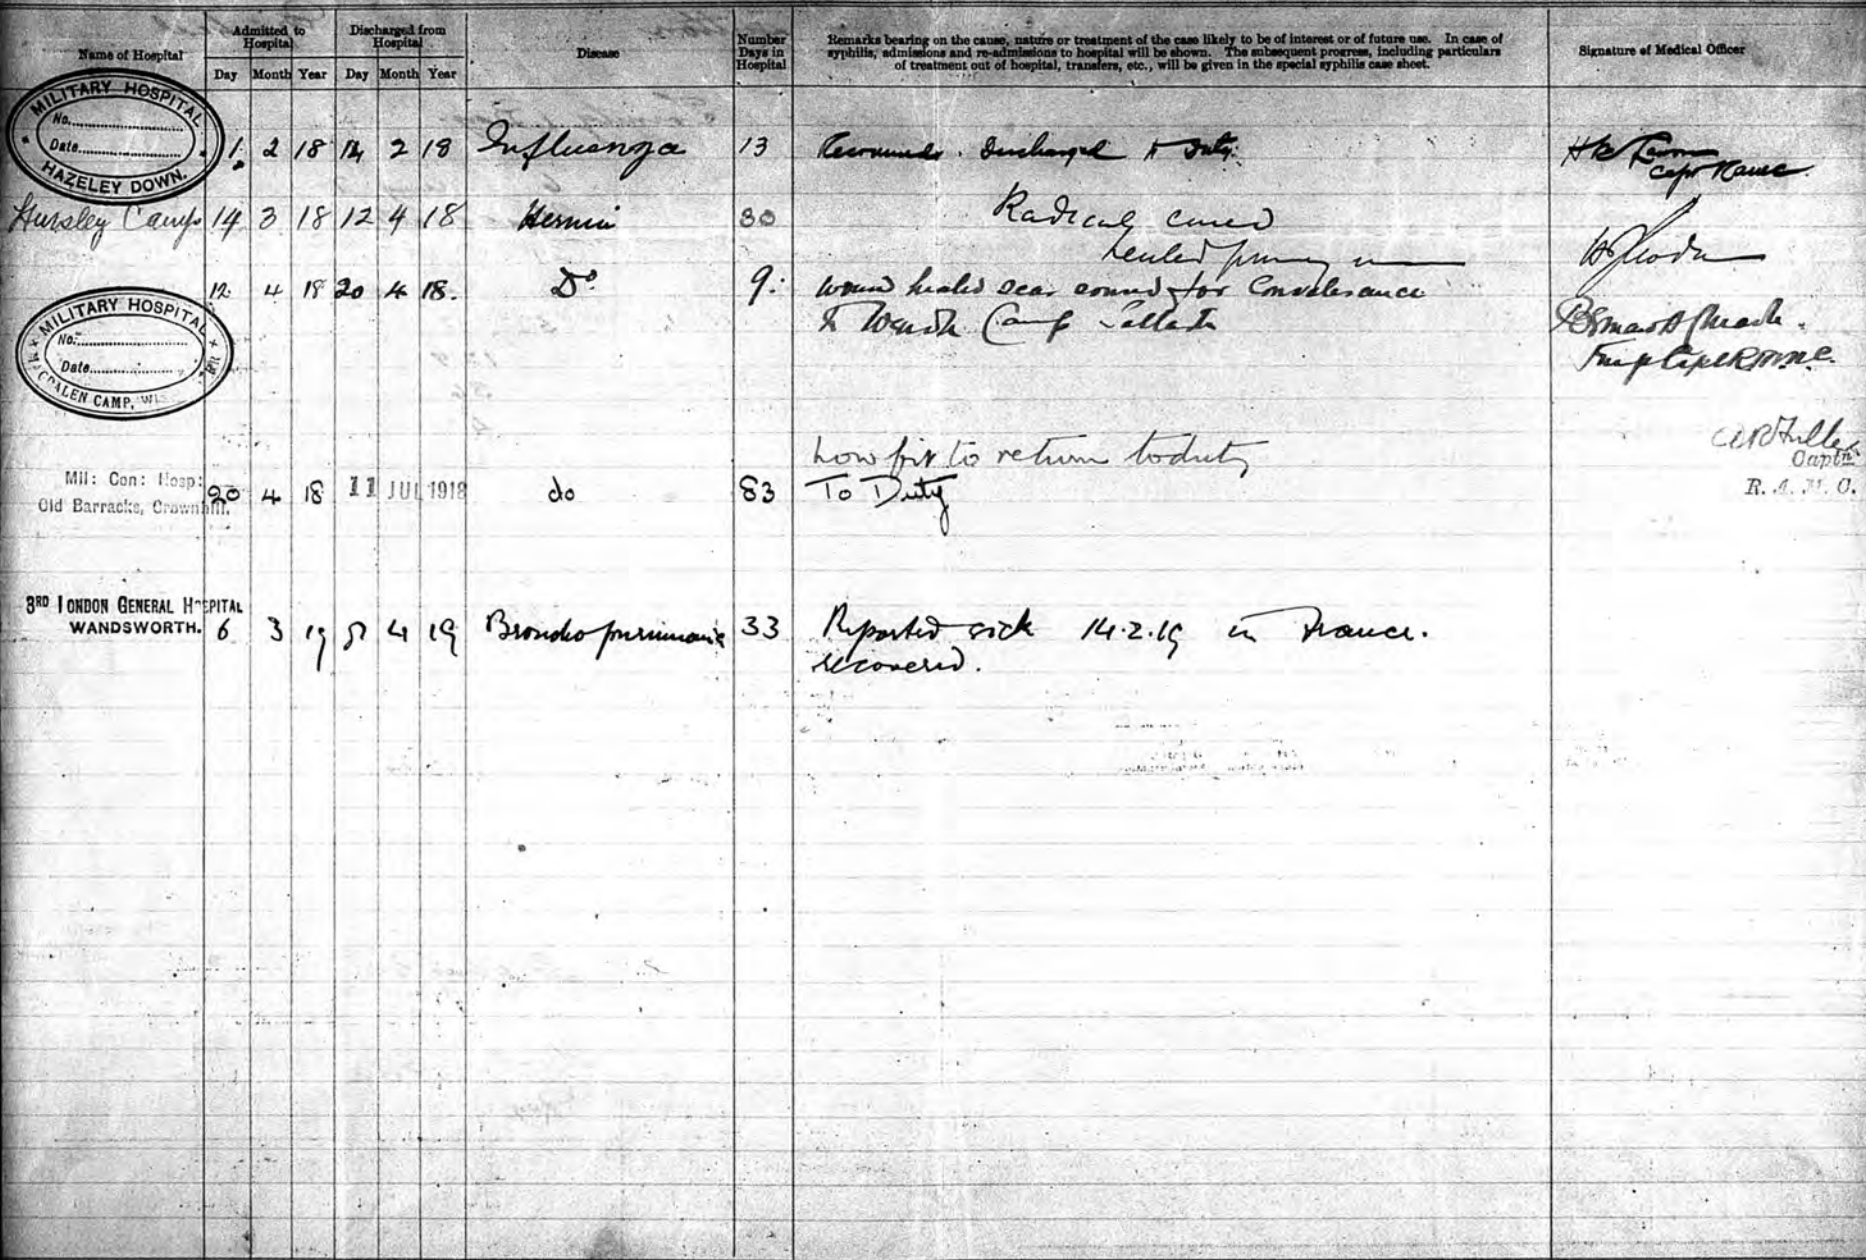 Name of Hospital
Admitted to Hospital
Discharged from Hospital
Disease
Number Days in Hospital
Remarks bearing on the cause, nature or treatment of the case likely to be of interest or of future use. In case of
syphilis, admissions and re-admissions to hospital will be shown. The subsequent progress, including particulars
of treatment out of hospital, transfers, etc., will be given in the special syphilis case sheet.
Signature of Medical Officer
Day Month Year Day Month Year
MILITARY HOSPITAL
No.
Date
HAZELEY DOWN.
1 2 18 14 2 18 Influenza 13 Discharged to Duty.
Capt
Hursley Camp 14 3 18 12 4 18 Hernia 30 Radical cured
healed
12 4 18 20 4 18. Do 9. Wound healed scar sound for Convalescance
Camp
MILITARY HOSPITAL
No.
Date
CAMP,
Mil: Con: Hosp:
Old Barracks, Crownhill.
20 4 18 11 JUL 1918 do 83 Now fit to return to duty
To Duty
Fuller
Captn
R. A. M. C.
3RD LONDON GENERAL HOSPITAL
WANDSWORTH.
6 3 19 4 19 Broncho pneumonia 33 Reported sick 14.2.19 in France.
recovered.